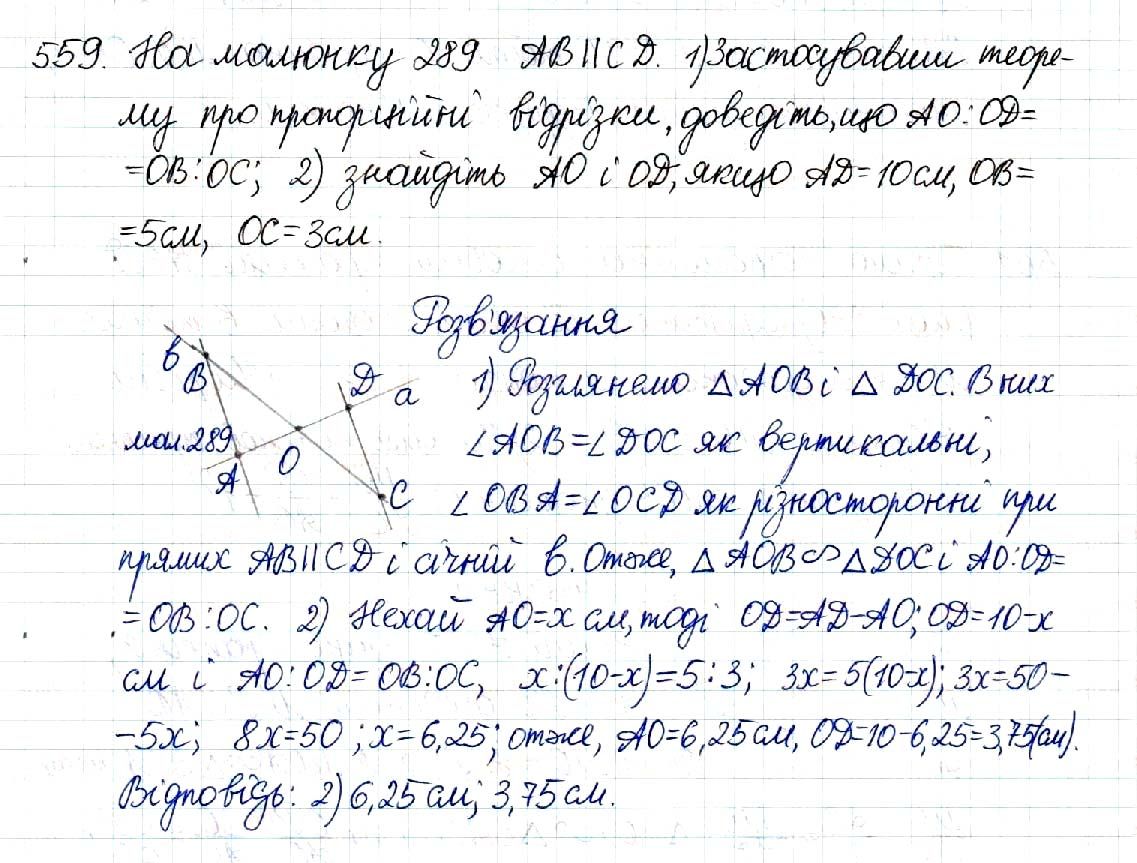 559. На малюнку 289 AB||CD. 1) Застосувавши теоре-
му про пропорційні відрізки, доведіть, що AO:OD=
=OB:OC; 2) знайдіть AO і OD, якщо AD=10см, OB=
=5см, OC=3см.
Розв'язання
в
B
D
a
мал.289
A
O
C
1) Розглянемо △AOB і △ DOC. В них
∠AOB=∠DOC як вертикальні,
∠OBA=∠OCD як різносторонні при
прямих AB||CD і січній в. Отже, △AOB∽△DOC і AO:OD=
=OB:OC. 2) Нехай AO=x см, тоді OD=AD-AO; OD=10-x
см і AO:OD=OB:OC, x:(10-x)=5:3; 3x=5(10-x); 3x=50-
-5x; 8x=50; x=6,25; отже, AO=6,25см, OD=10-6,25=3,75(см).
Відповідь: 2) 6,25см; 3,75см.